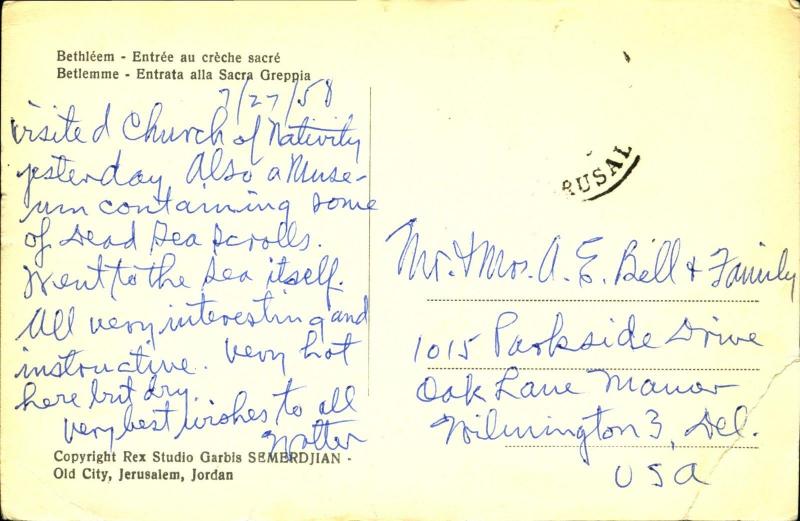 Bethléem - Entrée au crèche sacré
Betlemme - Entrata alla Sacra Greppia
7/27/58
Visited Church of Nativity
yesterday. Also a Muse-
um containing some
of Dead Sea Scrolls.
Went to the Sea itself.
All very interesting and
instructive. Very hot
here but dry.
Very best wishes to all
Walter
Copyright Rex Studio Garbis SEMERDJIAN -
Old City, Jerusalem, Jordan
RUSAL
Mr. & Mrs. A. E. Bell & Family
1015 Parkside Drive
Oak Lane Manor
Wilmington 3, Del.
USA